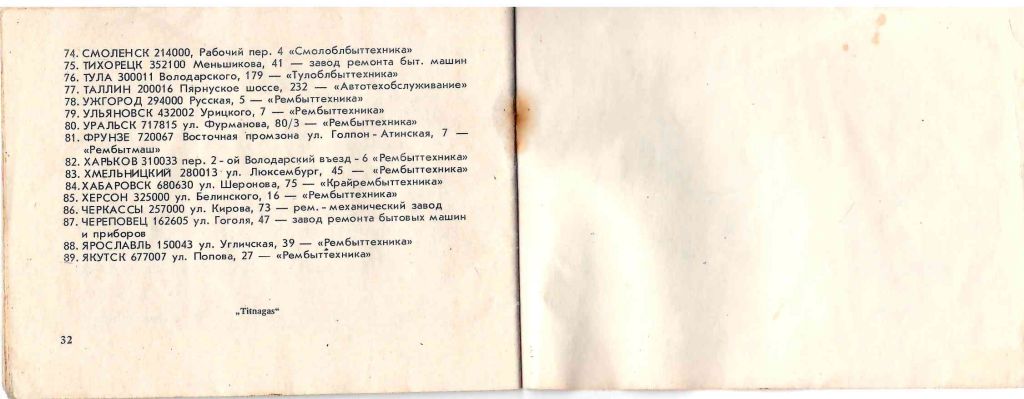 74. СМОЛЕНСК 214000, Рабочий пер. 4 «Смолоблбыттехника»
75. ТИХОРЕЦК 352100 Меньшикова, 41 — завод ремонта быт. машин
76. ТУЛА 300011 Володарского, 179 — «Тулоблбыттехника»
77. ТАЛЛИН 200016 Пярнуское шоссе, 232 — «Автотехобслуживание»
78. УЖГОРОД 294000 Русская, 5 — «Рембыттехника»
79. УЛЬЯНОВСК 432002 Урицкого, 7 — «Рембыттехника»
80. УРАЛЬСК 717815 ул. Фурманова, 80/3 — «Рембыттехника»
81. ФРУНЗЕ 720067 Восточная промзона ул. Голпон-Атинская, 7 —
«Рембытмаш»
82. ХАРЬКОВ 310033 пер. 2-ой Володарский въезд-6 «Рембыттехника»
83. ХМЕЛЬНИЦКИЙ 280013 ул. Люксембург, 45 — «Рембыттехника»
84. ХАБАРОВСК 680630 ул. Шеронова, 75 — «Крайрембыттехника»
85. ХЕРСОН 325000 ул. Белинского, 16 — «Рембыттехника»
86. ЧЕРКАССЫ 257000 ул. Кирова, 73 — рем.-механический завод
87. ЧЕРЕПОВЕЦ 162605 ул. Гоголя, 47 — завод ремонта бытовых машин
и приборов
88. ЯРОСЛАВЛЬ 150043 ул. Угличская, 39 — «Рембыттехника»
89. ЯКУТСК 677007 ул. Попова, 27 — «Рембыттехника»
„Titnagas“
32